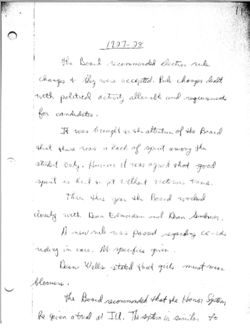 1927-28
The Board recommended election rule
changes & they were accepted. Rule changes dealt
with political activity allowable and requirements
for candidates.
It was brought to the attention of the Board
that there was a lack of spirit among the
student body. However it was agreed that good
spirit is hard to get without victorious teams.
Then this year the Board worked
closely with Dean Edmondson and Dean
A new rule was passed regarding co-eds
riding in cars. No specifics given.
Dean Wells stated that girls must wear
bloomers.
The Board recommended that the Honor System
be given a trial at Ill. The system is similar to